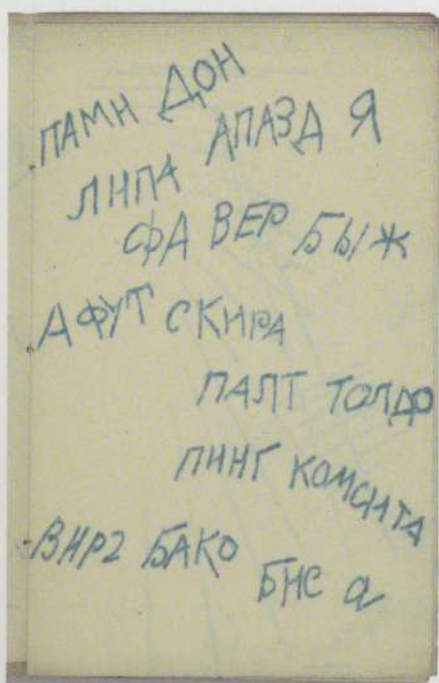 ПАМН ДОН
ЛНПА АПАЗД Я
ФА ВЕР БЫЖ
АФУТ СКИРА
ПАЛТ ТОЛДО
ПИНГ КОМСИТА
ВИР2 БАКО
БНС а